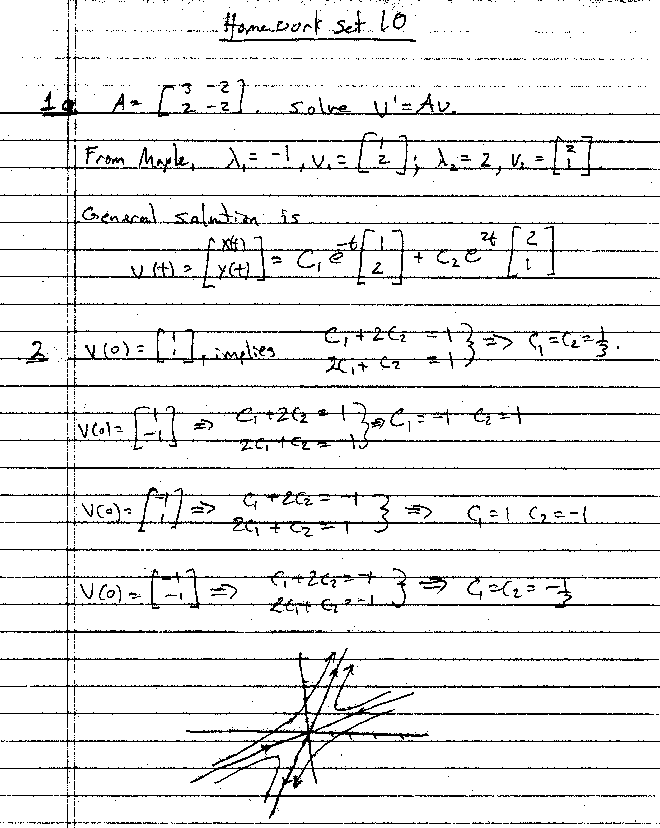 Homework set 10
1a A = [3 -2; 2 -2]. solve v' = Av.
From Maple, λ₁ = -1, v₁ = [1; 2]; λ₂ = 2, v₂ = [2; 1]
General solution is
v(t) = [x(t); y(t)] = C₁e^{-t}[1; 2] + C₂e^{2t}[2; 1]
2 v(0) = [1; 1], implies C₁ + 2C₂ = 1, 2C₁ + C₂ = 1 } => C₁ = C₂ = 1/3.
v(0) = [1; -1] => C₁ + 2C₂ = 1, 2C₁ + C₂ = -1 } => C₁ = -1 C₂ = 1
v(0) = [-1; 1] => C₁ + 2C₂ = -1, 2C₁ + C₂ = 1 } => C₁ = 1 C₂ = -1
v(0) = [-1; -1] => C₁ + 2C₂ = -1, 2C₁ + C₂ = -1 } => C₁ = C₂ = -1/3